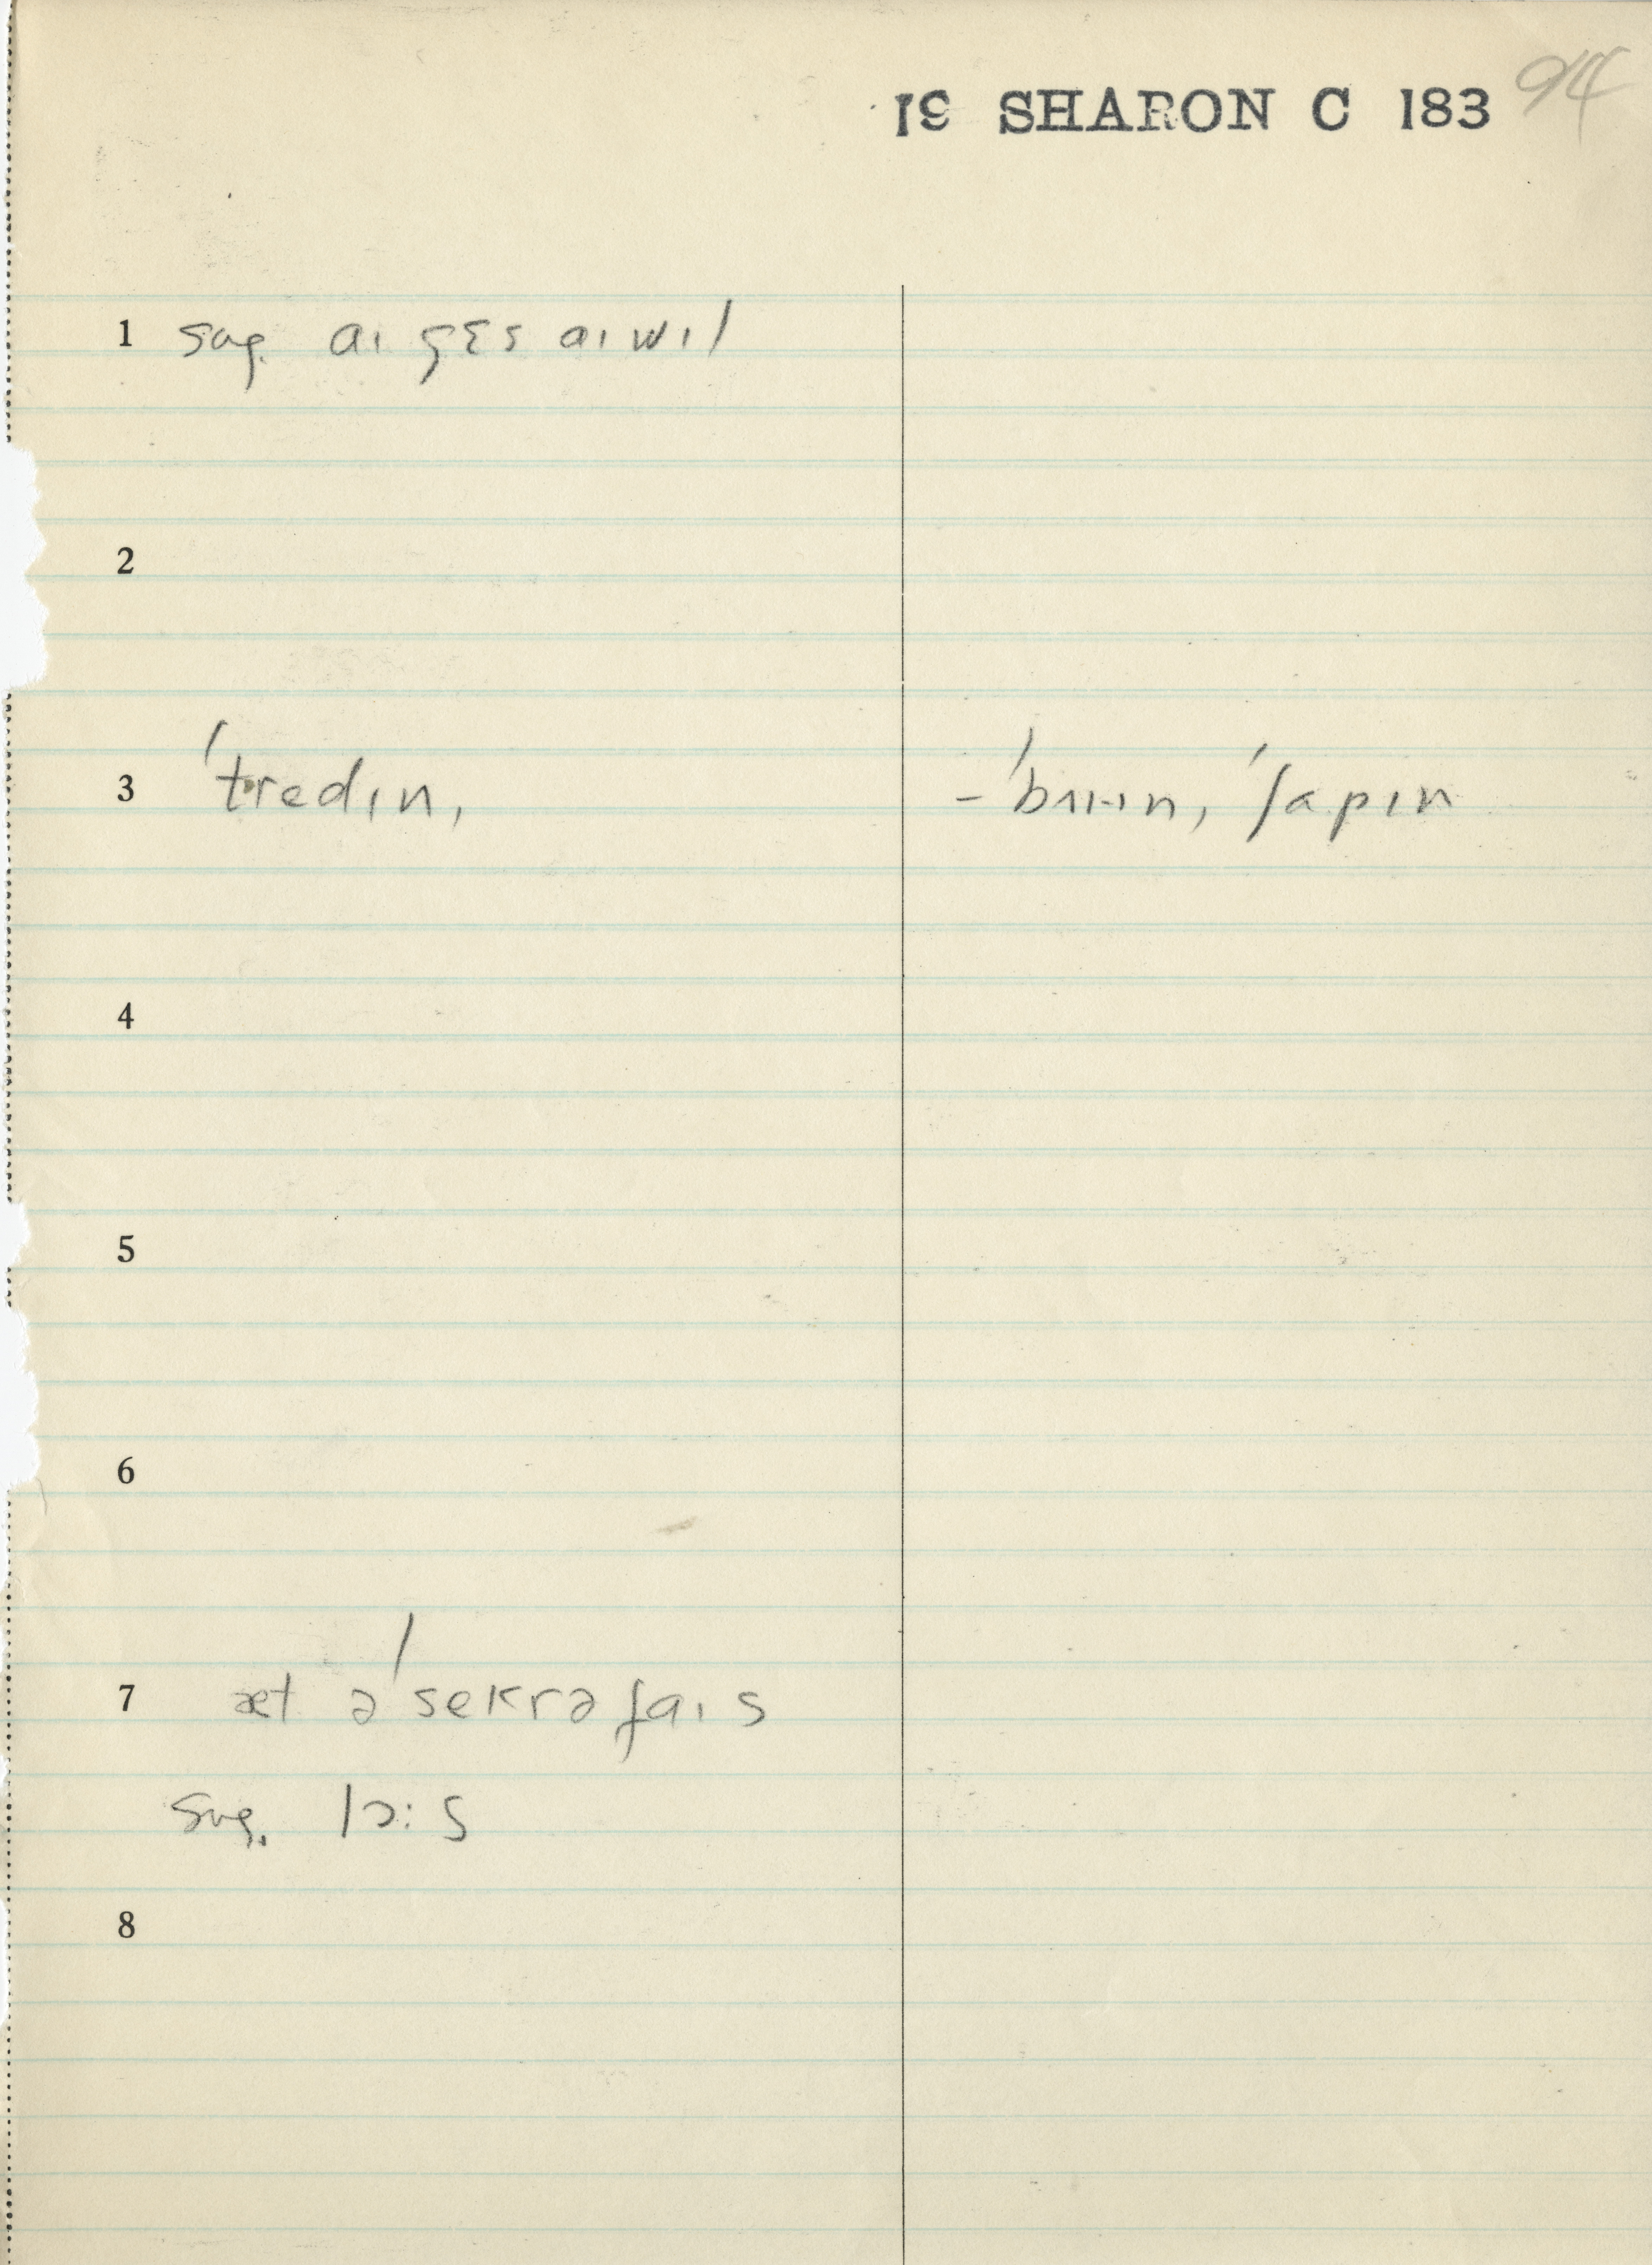 19 SHARON C 183 94
1 sug. aɪ gɛs aɪ wɪl
2
3 ˈtredɪn, – ˈbaɪɪn, ˈʃapɪn
4
5
6
7 æt ə ˈsekrəfaɪs
sug. lɔ:s
8